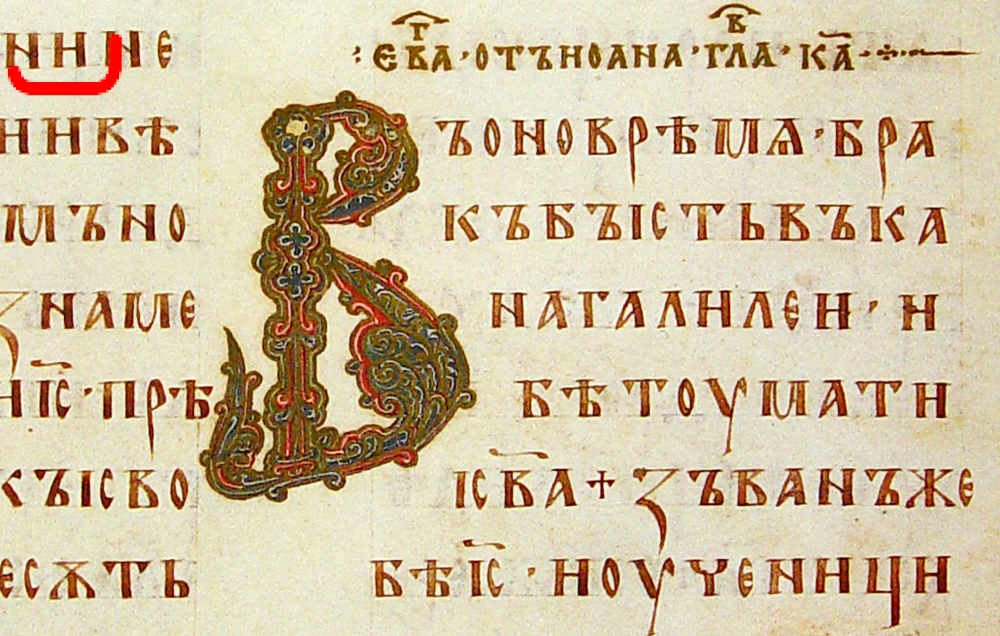 НИНЕ
ИИВѢ
МЪНО
ЗНАМЕ
ИІ҃С·ПРѢ
КЪІСВО
ЕСѪТЬ
:ЕВⷢ҇А·ОТЪИОАНА·ГЛⷡ҇А·КА҃·
ВЪОНОВРѢМѦ·БРА
КЪБЪІСТЬВЪКА
НАГАЛИЛЕИ·И
БѢТОУМАТИ
ІСВ҃А+ЗЪВАНЪЖЕ
БѢІ҃С·ИОУЧЕНИЦИ